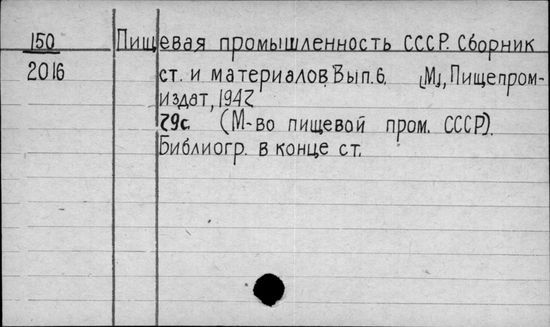 150 Пищевая промышленность СССР. Сборник
2016 ст. и материалов. Вып. 6. [М.], Пищепром-
издат, 1942
79с. (М-во пищевой пром. СССР).
Библиогр. в конце ст.